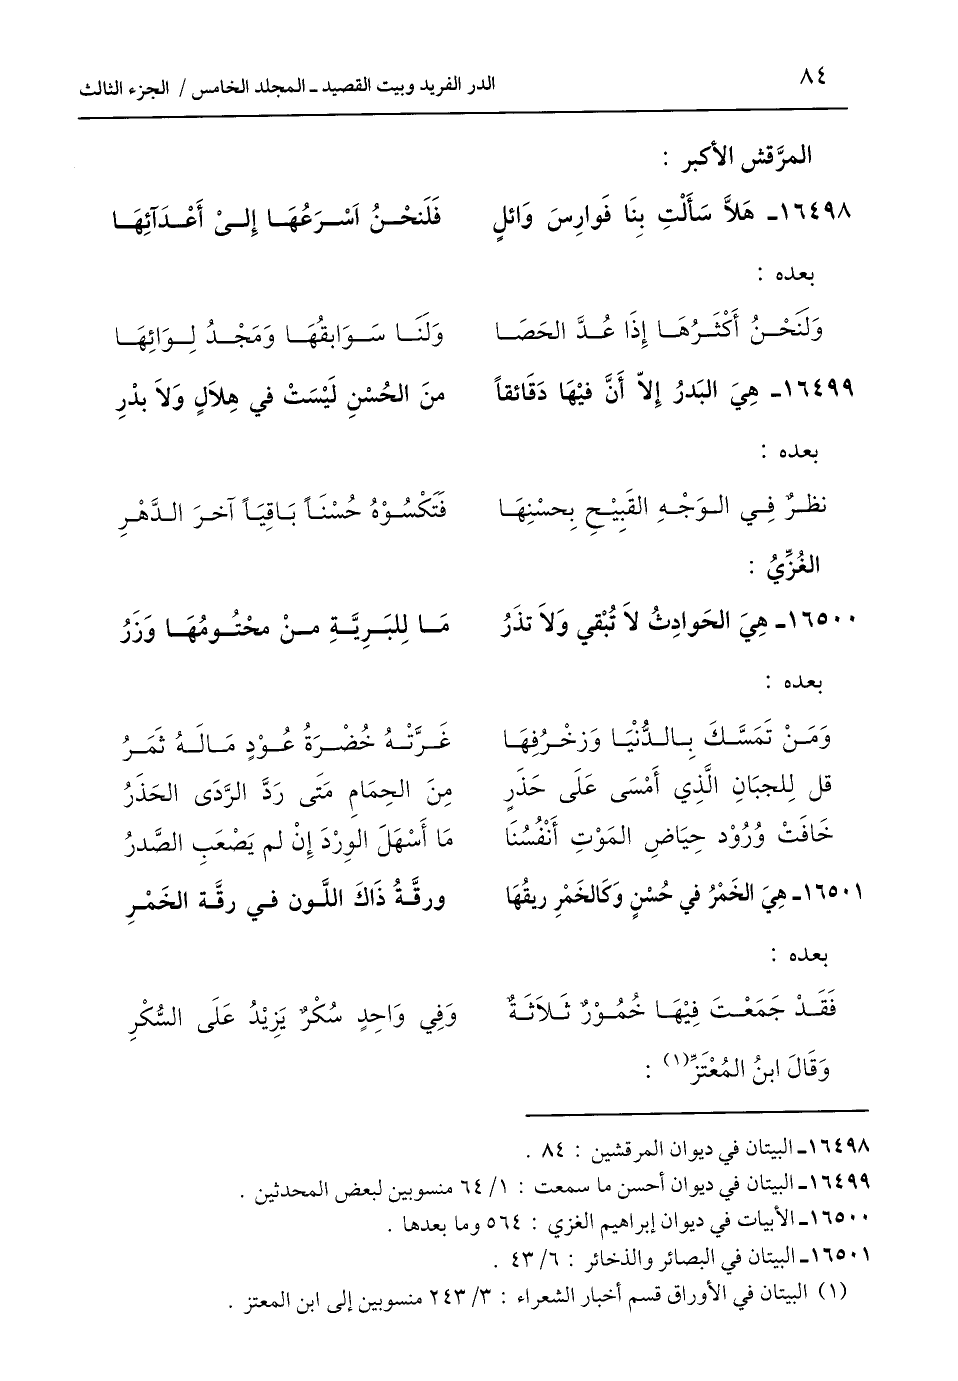 ٨٤ الدر الفريد وبيت القصيد ـ المجلد الخامس / الجزء الثالث
المرَّقش الأكبر :
١٦٤٩٨ـ هَلاَّ سَأَلْتِ بِنَا فَوارِسَ وَائلٍ فَلَنَحْنُ اَسْرَعُهَا إِلىْ أَعْدَآئِهَا
بعده :
وَلَنَحْنُ أَكْثَرُهَا إِذَا عُدَّ الحَصَا وَلَنَا سَوَابقُهَا وَمَجْدُ لِوَائِهَا
١٦٤٩٩ـ هِيَ البَدرُ إِلاّ أَنَّ فيْهَا دَقَائقاً منَ الحُسْنِ لَيْسَتْ في هِلاَلٍ وَلاَ بدْرِ
بعده :
نظرٌ فِي الوَجْهِ القَبيْحِ بِحسْنِهَا فَتَكْسُوْهُ حُسْناً بَاقيَاً آخرَ الدَّهْرِ
الغُزِّيُ :
١٦٥٠٠ـ هِيَ الحَوادِثُ لاَ تُبْقي وَلاَ تذَرُ مَا لِلبَرِيَّةِ منْ محْتُومُهَا وَزَرُ
بعده :
وَمَنْ تَمَسَّكَ بِالدُّنْيَا وَزخْرُفِهَا غَرَّتْهُ خُضْرَةُ عُوْدٍ مَالَهُ ثمَرُ
قل لِلجبَانِ الَّذِي أَمْسَى عَلَى حَذرٍ مِنَ الحِمَامِ مَتَى رَدَّ الرَّدَى الحَذَرُ
خَافَتْ وُرُوْد حِيَاضِ المَوْتِ أَنْفُسُنَا مَا أَسْهَلَ الوِرْدَ إِنْ لم يَصْعَبِ الصَّدرُ
١٦٥٠١ـ هِيَ الخَمْرُ في حُسْنٍ وَكَالخَمْرِ ريقُهَا ورقَّةُ ذَاكَ اللَّون في رقَّة الخَمْرِ
بعده :
فَقَدْ جَمَعْتَ فِيْهَا خُمُوْرٌ ثَلاَثَةٌ وَفِي وَاحِدٍ سُكْرٌ يَزِيْدُ عَلَى السُّكْرِ
وَقَالَ ابنُ المُعْتَزِّ(١) :
١٦٤٩٨ـ البيتان في ديوان المرقشين : ٨٤ .
١٦٤٩٩ـ البيتان في ديوان أحسن ما سمعت : ١/ ٦٤ منسوبين لبعض المحدثين .
١٦٥٠٠ـ الأبيات في ديوان إبراهيم الغزي : ٥٦٤ وما بعدها .
١٦٥٠١ـ البيتان في البصائر والذخائر : ٦/ ٤٣ .
(١) البيتان في الأوراق قسم أخبار الشعراء : ٣/ ٢٤٣ منسوبين إلى ابن المعتز .